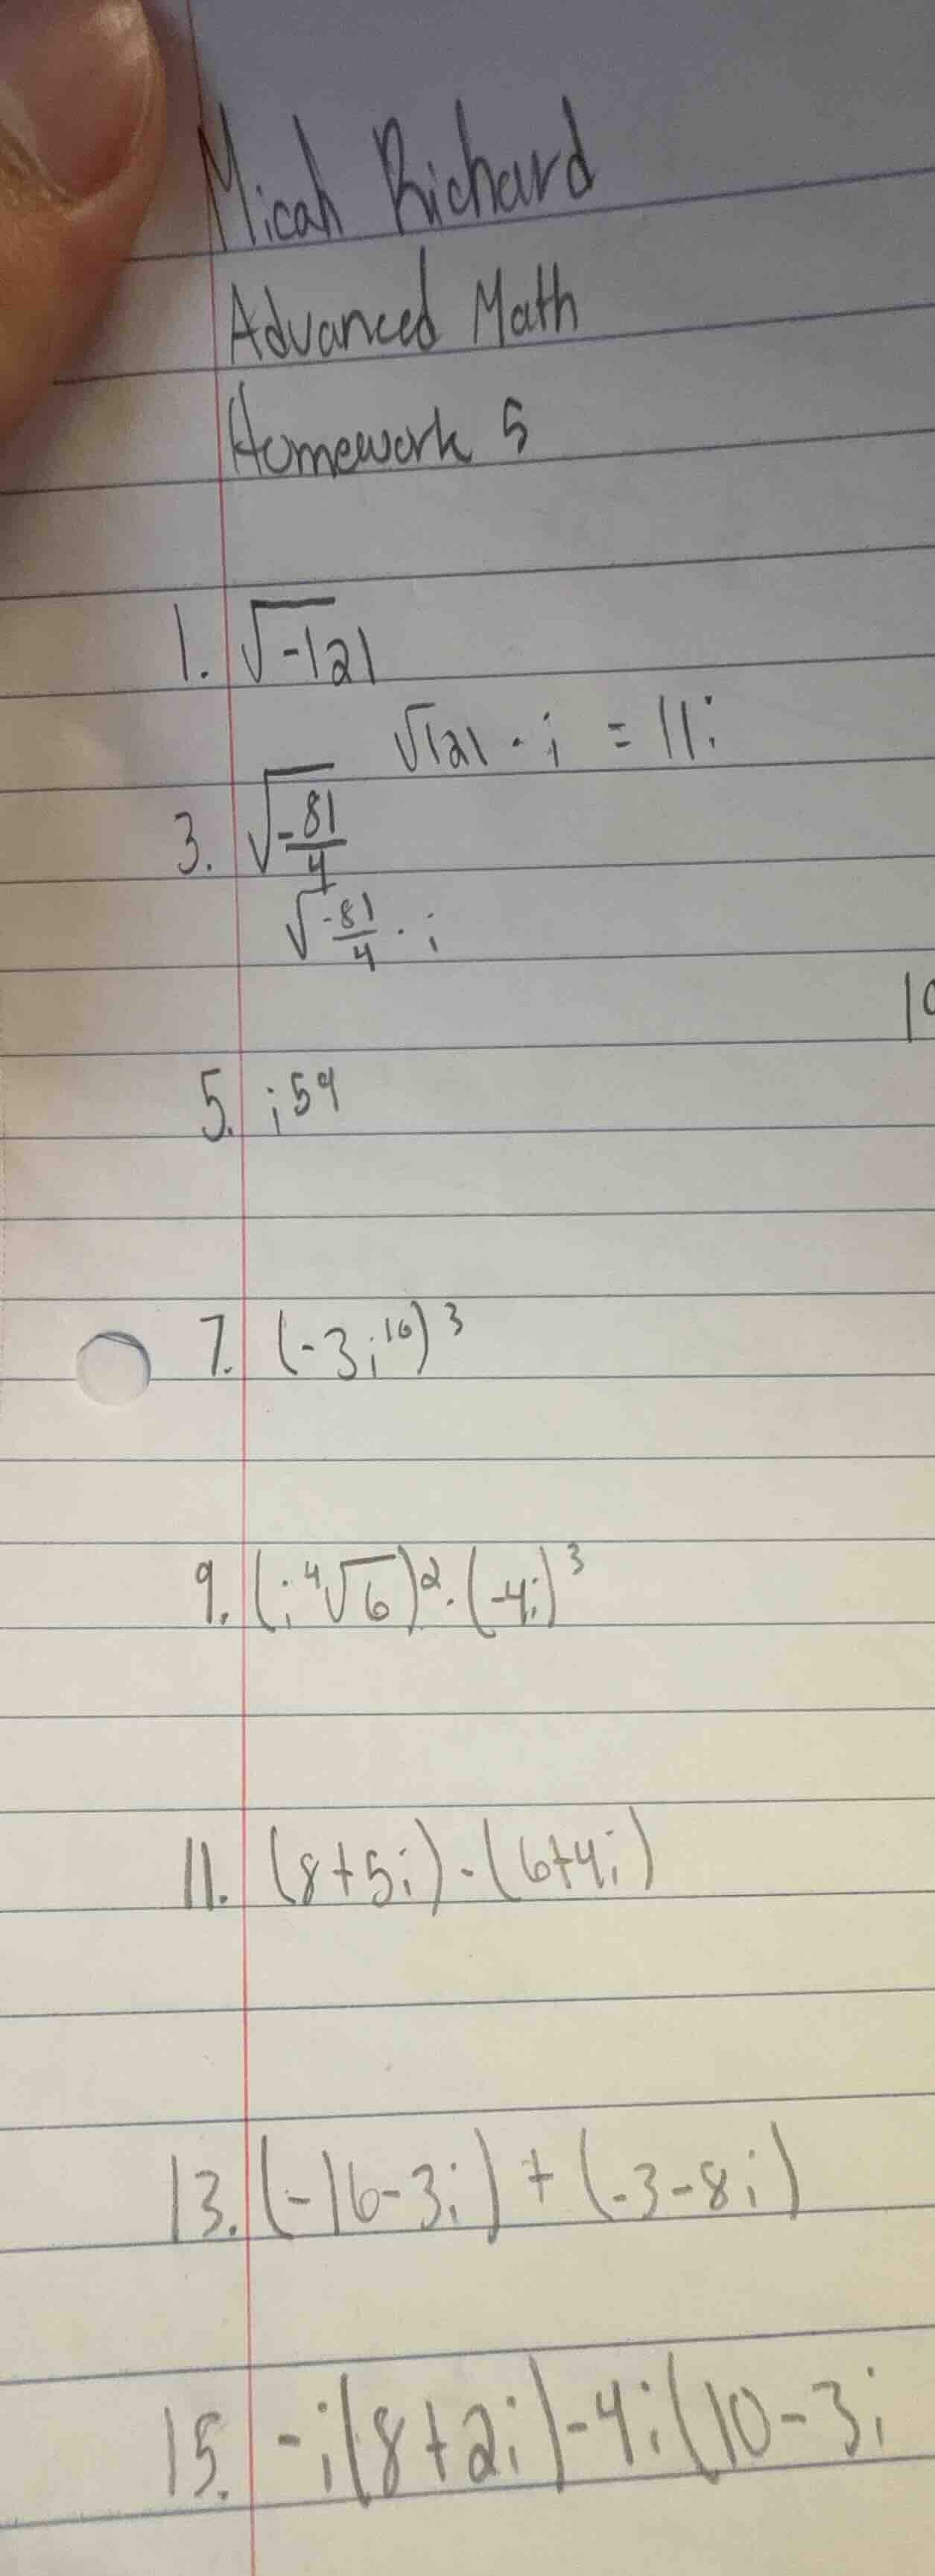 Micah Richard
Advanced Math
Homework 5
1. √-121
√121 · i = 11i
3. √-81/4
√-81/4 · i
10
5. i^59
7. (-3i^10)^3
9. (i ⁴√6)^2 · (-4i)^3
11. (8+5i) - (6+4i)
13. (-16-3i) + (-3-8i)
15. -i(8+2i)-4i(10-3i